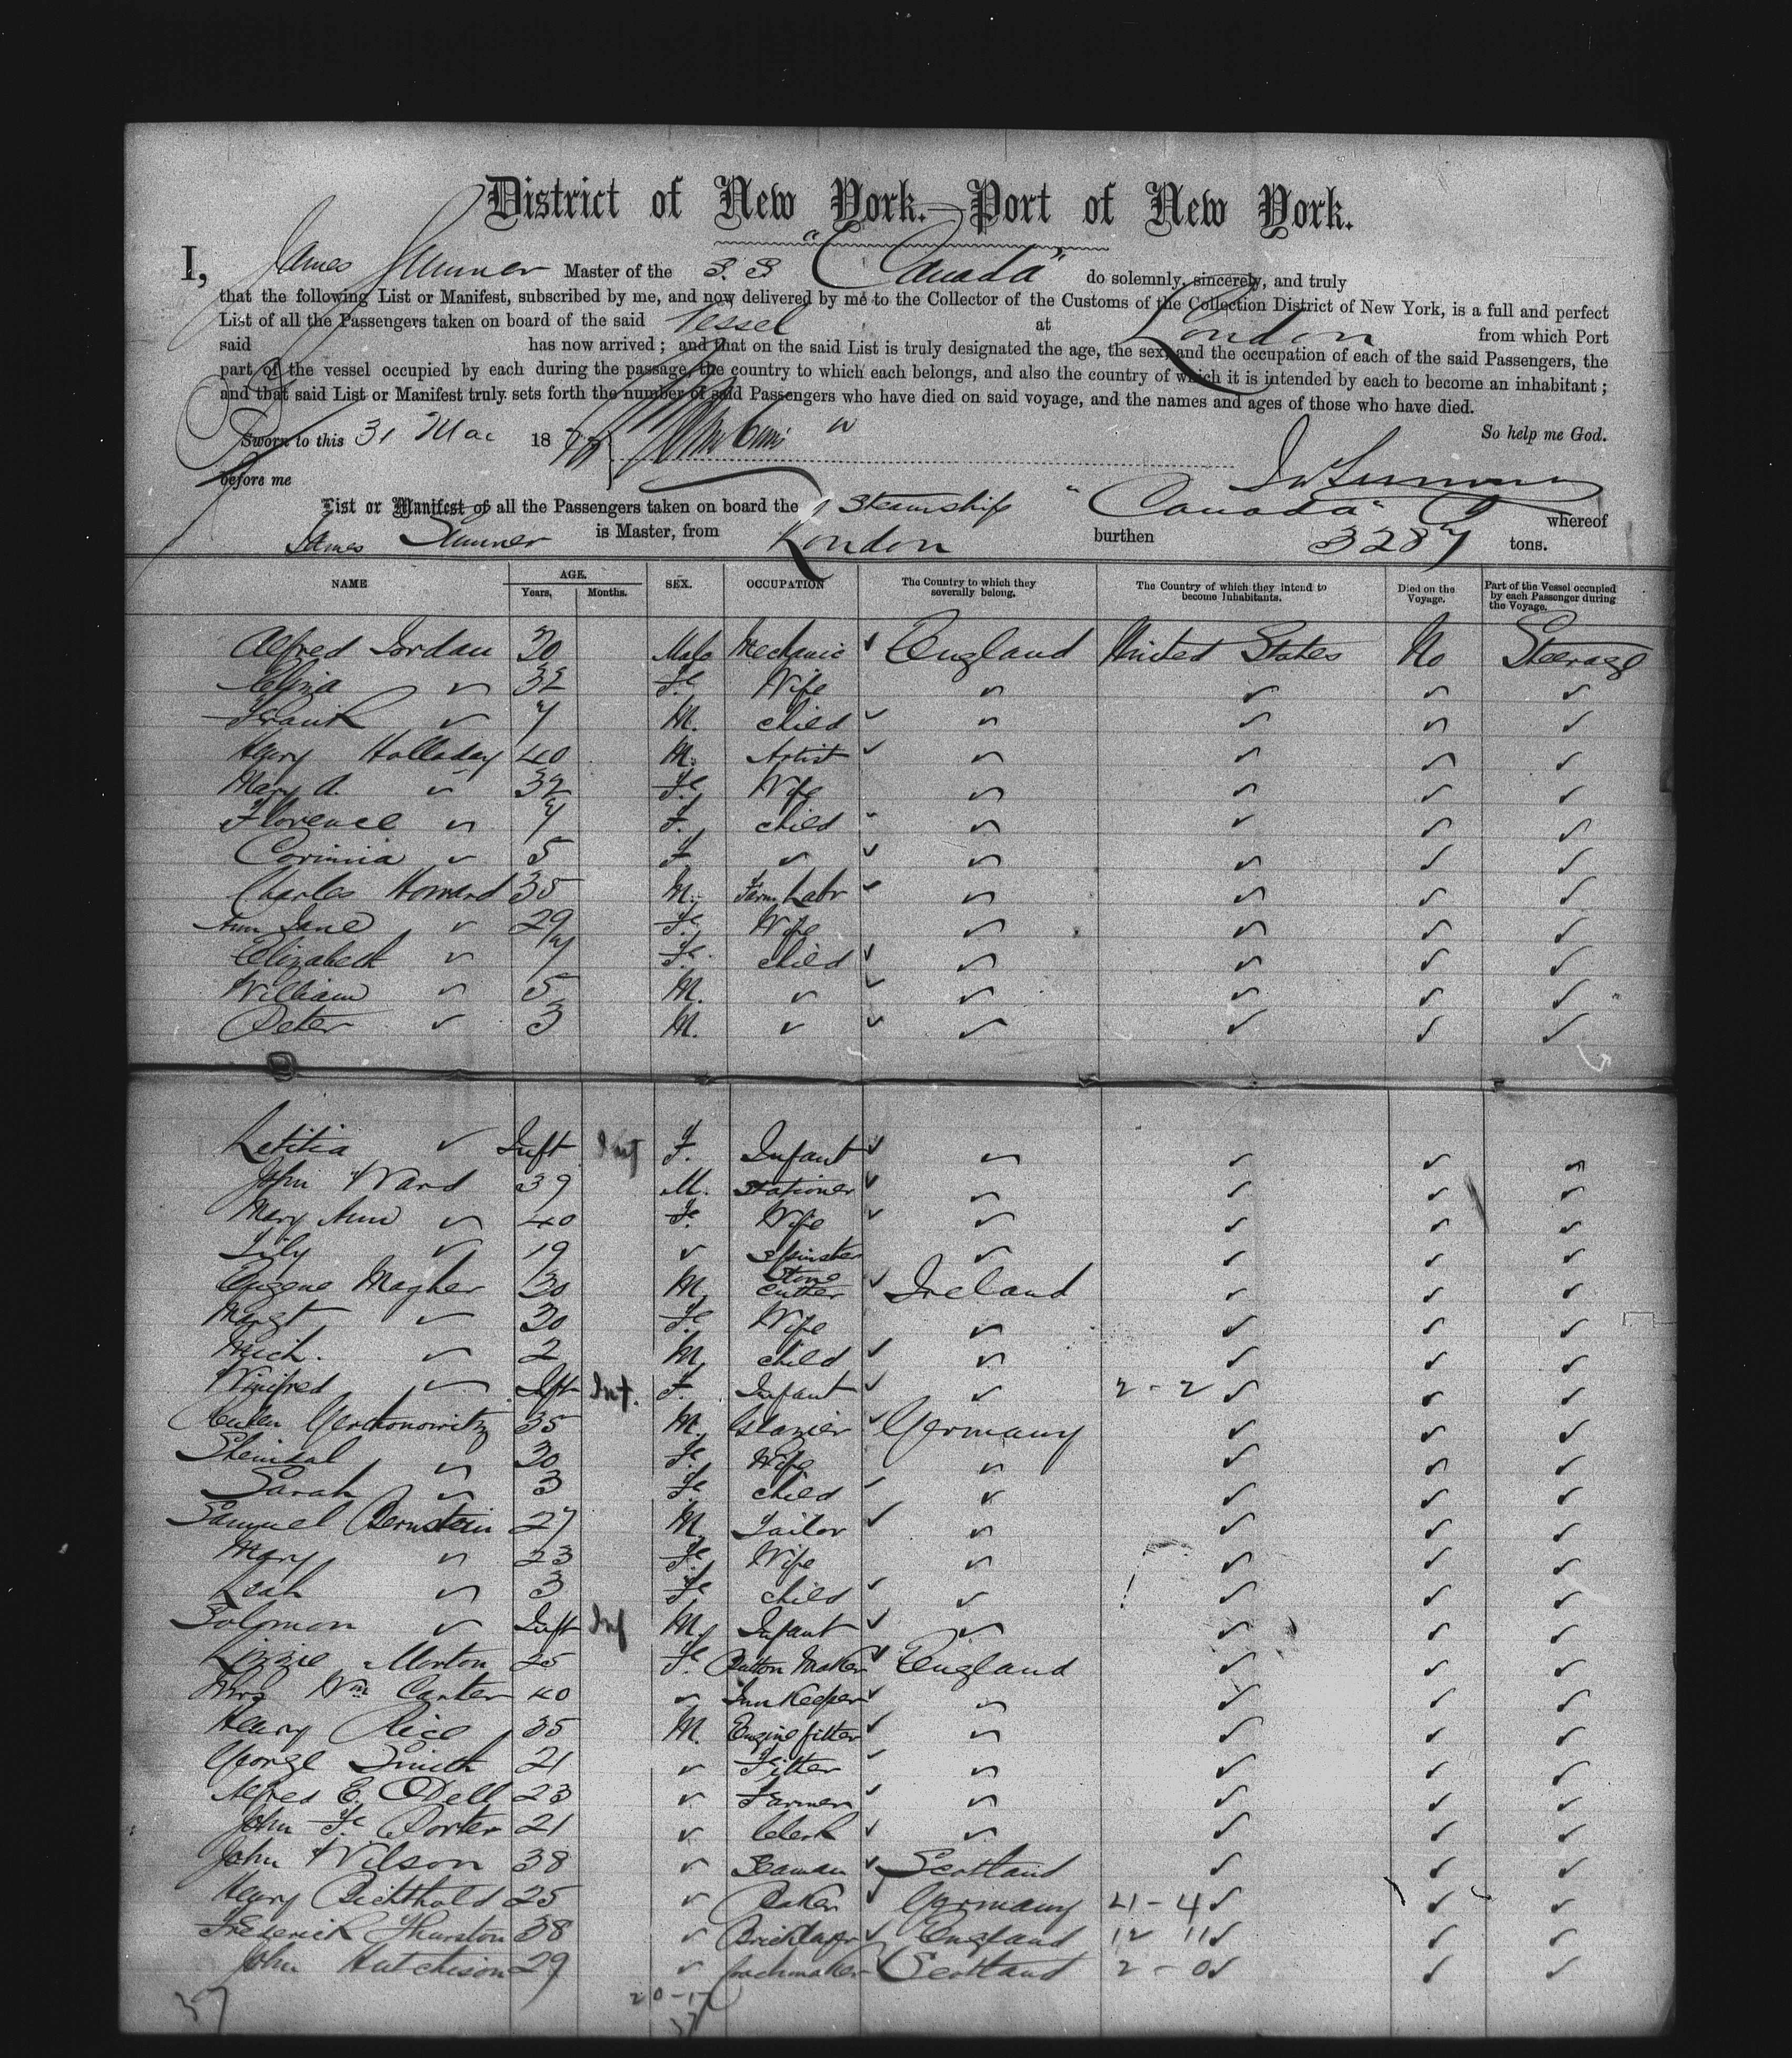 District of New York.—Port of New York.
I, James Sumner Master of the S. S "Canada" do solemnly, sincerely, and truly
that the following List or Manifest, subscribed by me, and now delivered by me to the Collector of the Customs of the Collection District of New York, is a full and perfect
List of all the Passengers taken on board of the said Vessel at London from which Port
said has now arrived; and that on the said List is truly designated the age, the sex, and the occupation of each of the said Passengers, the
part of the vessel occupied by each during the passage, the country to which each belongs, and also the country of which it is intended by each to become an inhabitant;
and that said List or Manifest truly sets forth the number of said Passengers who have died on said voyage, and the names and ages of those who have died.
Sworn to this 31 Mac 18 So help me God.
before me
List or Manifest of all the Passengers taken on board the Steamship "Canada" whereof
James Sumner is Master, from London burthen 3287 tons.
NAME AGE. Years, Months. SEX. OCCUPATION The Country to which they severally belong. The Country of which they intend to become Inhabitants. Died on the Voyage. Part of the Vessel occupied by each Passenger during the Voyage.
Alfred Jordan 30 Male Mechanic ✓ England United States No Steerage
Eliza " 32 Fe Wife " " " "
Frank " 7 M. child ✓ " " " "
Henry Holladay 40 M. Artist ✓ " " " "
Mary A. " 32 Fe Wife " " " "
Florence " 7 F. child " " " "
Corinnia " 5 F " ✓ " " " "
Charles Howard 35 M. Farm Labr ✓ " " " "
Ann Jane " 29 Fe Wife " " " "
Elizabeth " 7 Fe child ✓ " " " "
William " 5 M. " ✓ " " " "
Peter " 3 M. " ✓ " " " "
Letitia " Inft Inf F. Infant ✓ " " " "
John Ward 39 M. Stationer ✓ " " " "
Mary Ann " 40 Fe Wife ✓ " " " "
Lily " 19 " Spinster " " " "
Eugene Magher 30 M. Stone Cutter ✓ Ireland " " "
Margt " 30 Fe Wife " " " "
Mich. " 2 M. child ✓ " " " "
Winifred " Inft Inf. F. Infant ✓ " 2 - 2 " " "
Gerchonowitz 35 M. Glazier ✓ Germany " " "
" 30 Fe Wife " " " "
Sarah " 3 Fe child ✓ " " " "
Samuel Bernstein 27 M. Tailor ✓ " " " "
Mary " 23 Fe Wife " " " "
Leah " 3 Fe child ✓ " " " "
Solomon " Inft Inf M. Infant ✓ " " " "
Lizzie Morton 25 Fe Button Maker ✓ England " " "
Mrs Wm Carter 40 " Inn Keeper ✓ " " " "
Henry Rice 35 M. Engine fitter ✓ " " " "
George Smith 21 " Fitter ✓ " " " "
Alfred E. Odell 23 " Farmer ✓ " " " "
John Fe Porter 21 " Clerk ✓ " " " "
John Wilson 38 " Seaman ✓ Scotland " " "
Henry Bichthold 25 " Baker ✓ Germany 21 - 4 " " "
Frederick Thurston 38 " Bricklayr ✓ England 12 11 " " "
John Hutchison 29 " Coachmaker ✓ Scotland 2 - 0 " " "
37 20-17
37